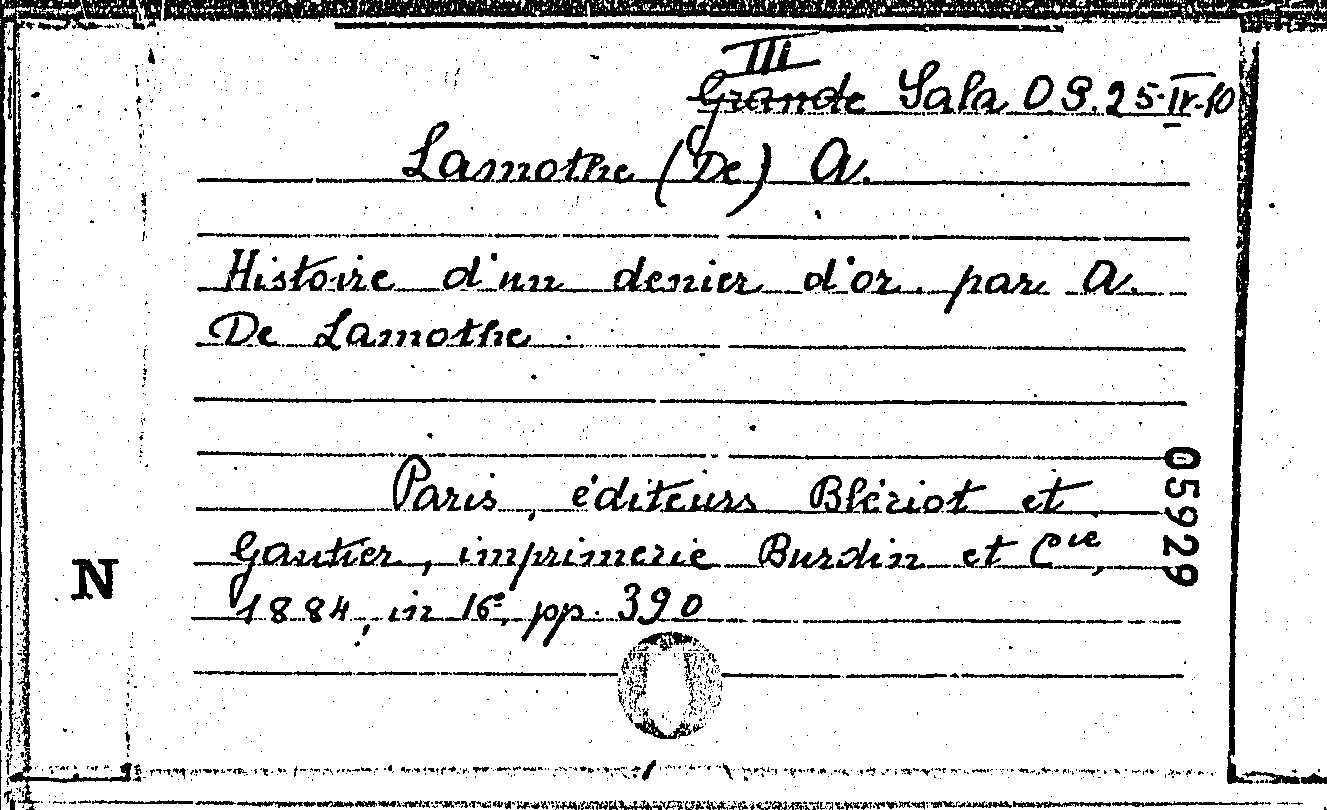 III
Grande Sala O S. 25-IV-10
Lamothe (De) A.
Histoire d'un denier d'or par A.
De Lamothe.
Paris, éditeurs Blériot et
Gautier, imprimerie Burdin et Cie,
1884, in 16e, pp. 390
05929
N